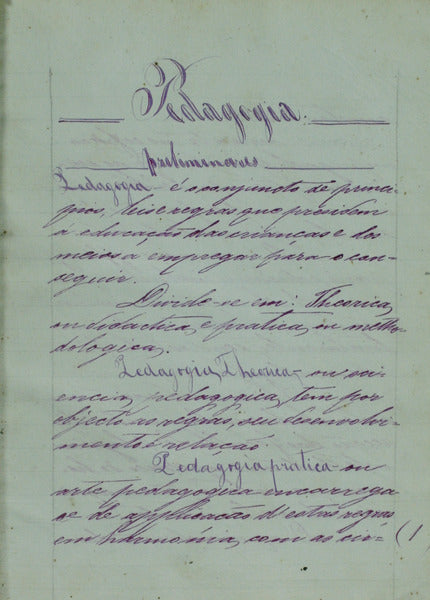 Pedagogia.
preleminares
Pedagogia - é o conjuncto de princi-
pios, leis e regras que presidem
á educação das crianças e dos
meios a empregar para o con-
seguir.
Divide-se em: Theorica,
ou didactica, e pratica, ou metho-
dologica.
Pedagogia Theorica - ou sci-
encia pedagogica, tem por
objecto as regras, seu desenvolvi-
mento e relação.
Pedagogia pratica - ou
arte pedagogica encarrega
se de applicação d'estas regras
em harmonia, com as cir- (1